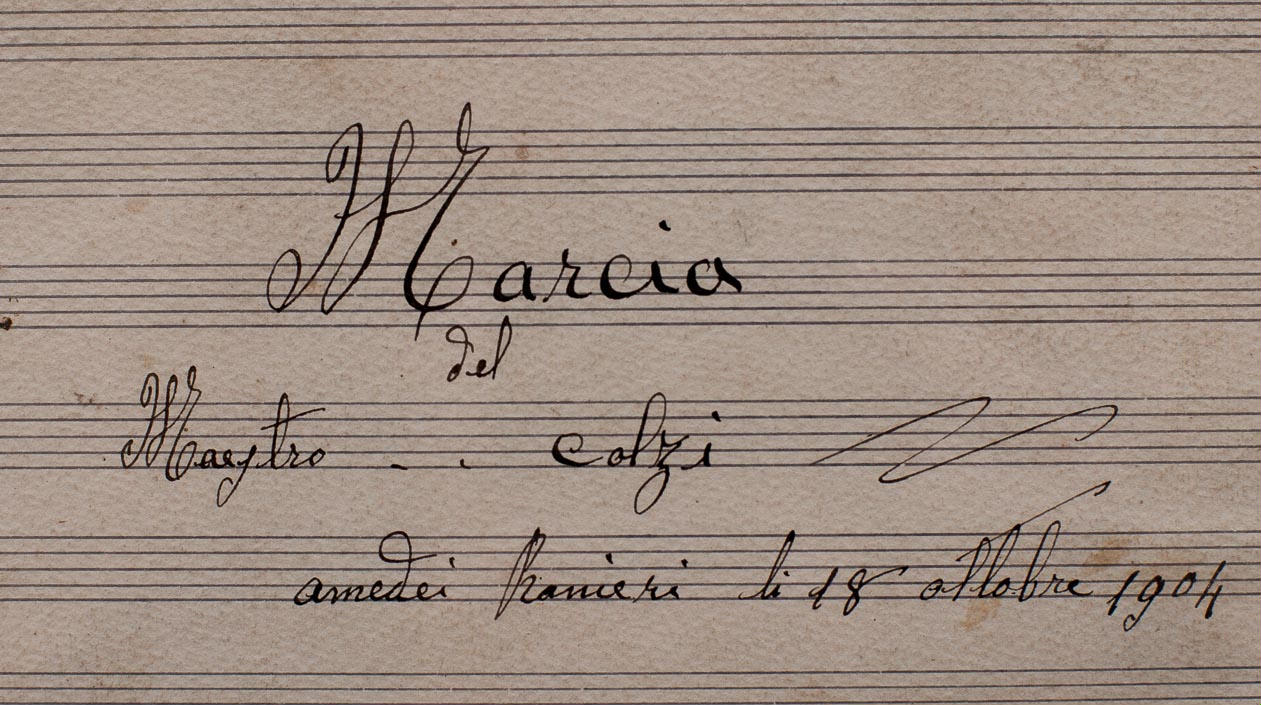 Marcia
del
Maestro - . Colzi
amedei Ranieri li 18 ottobre 1904